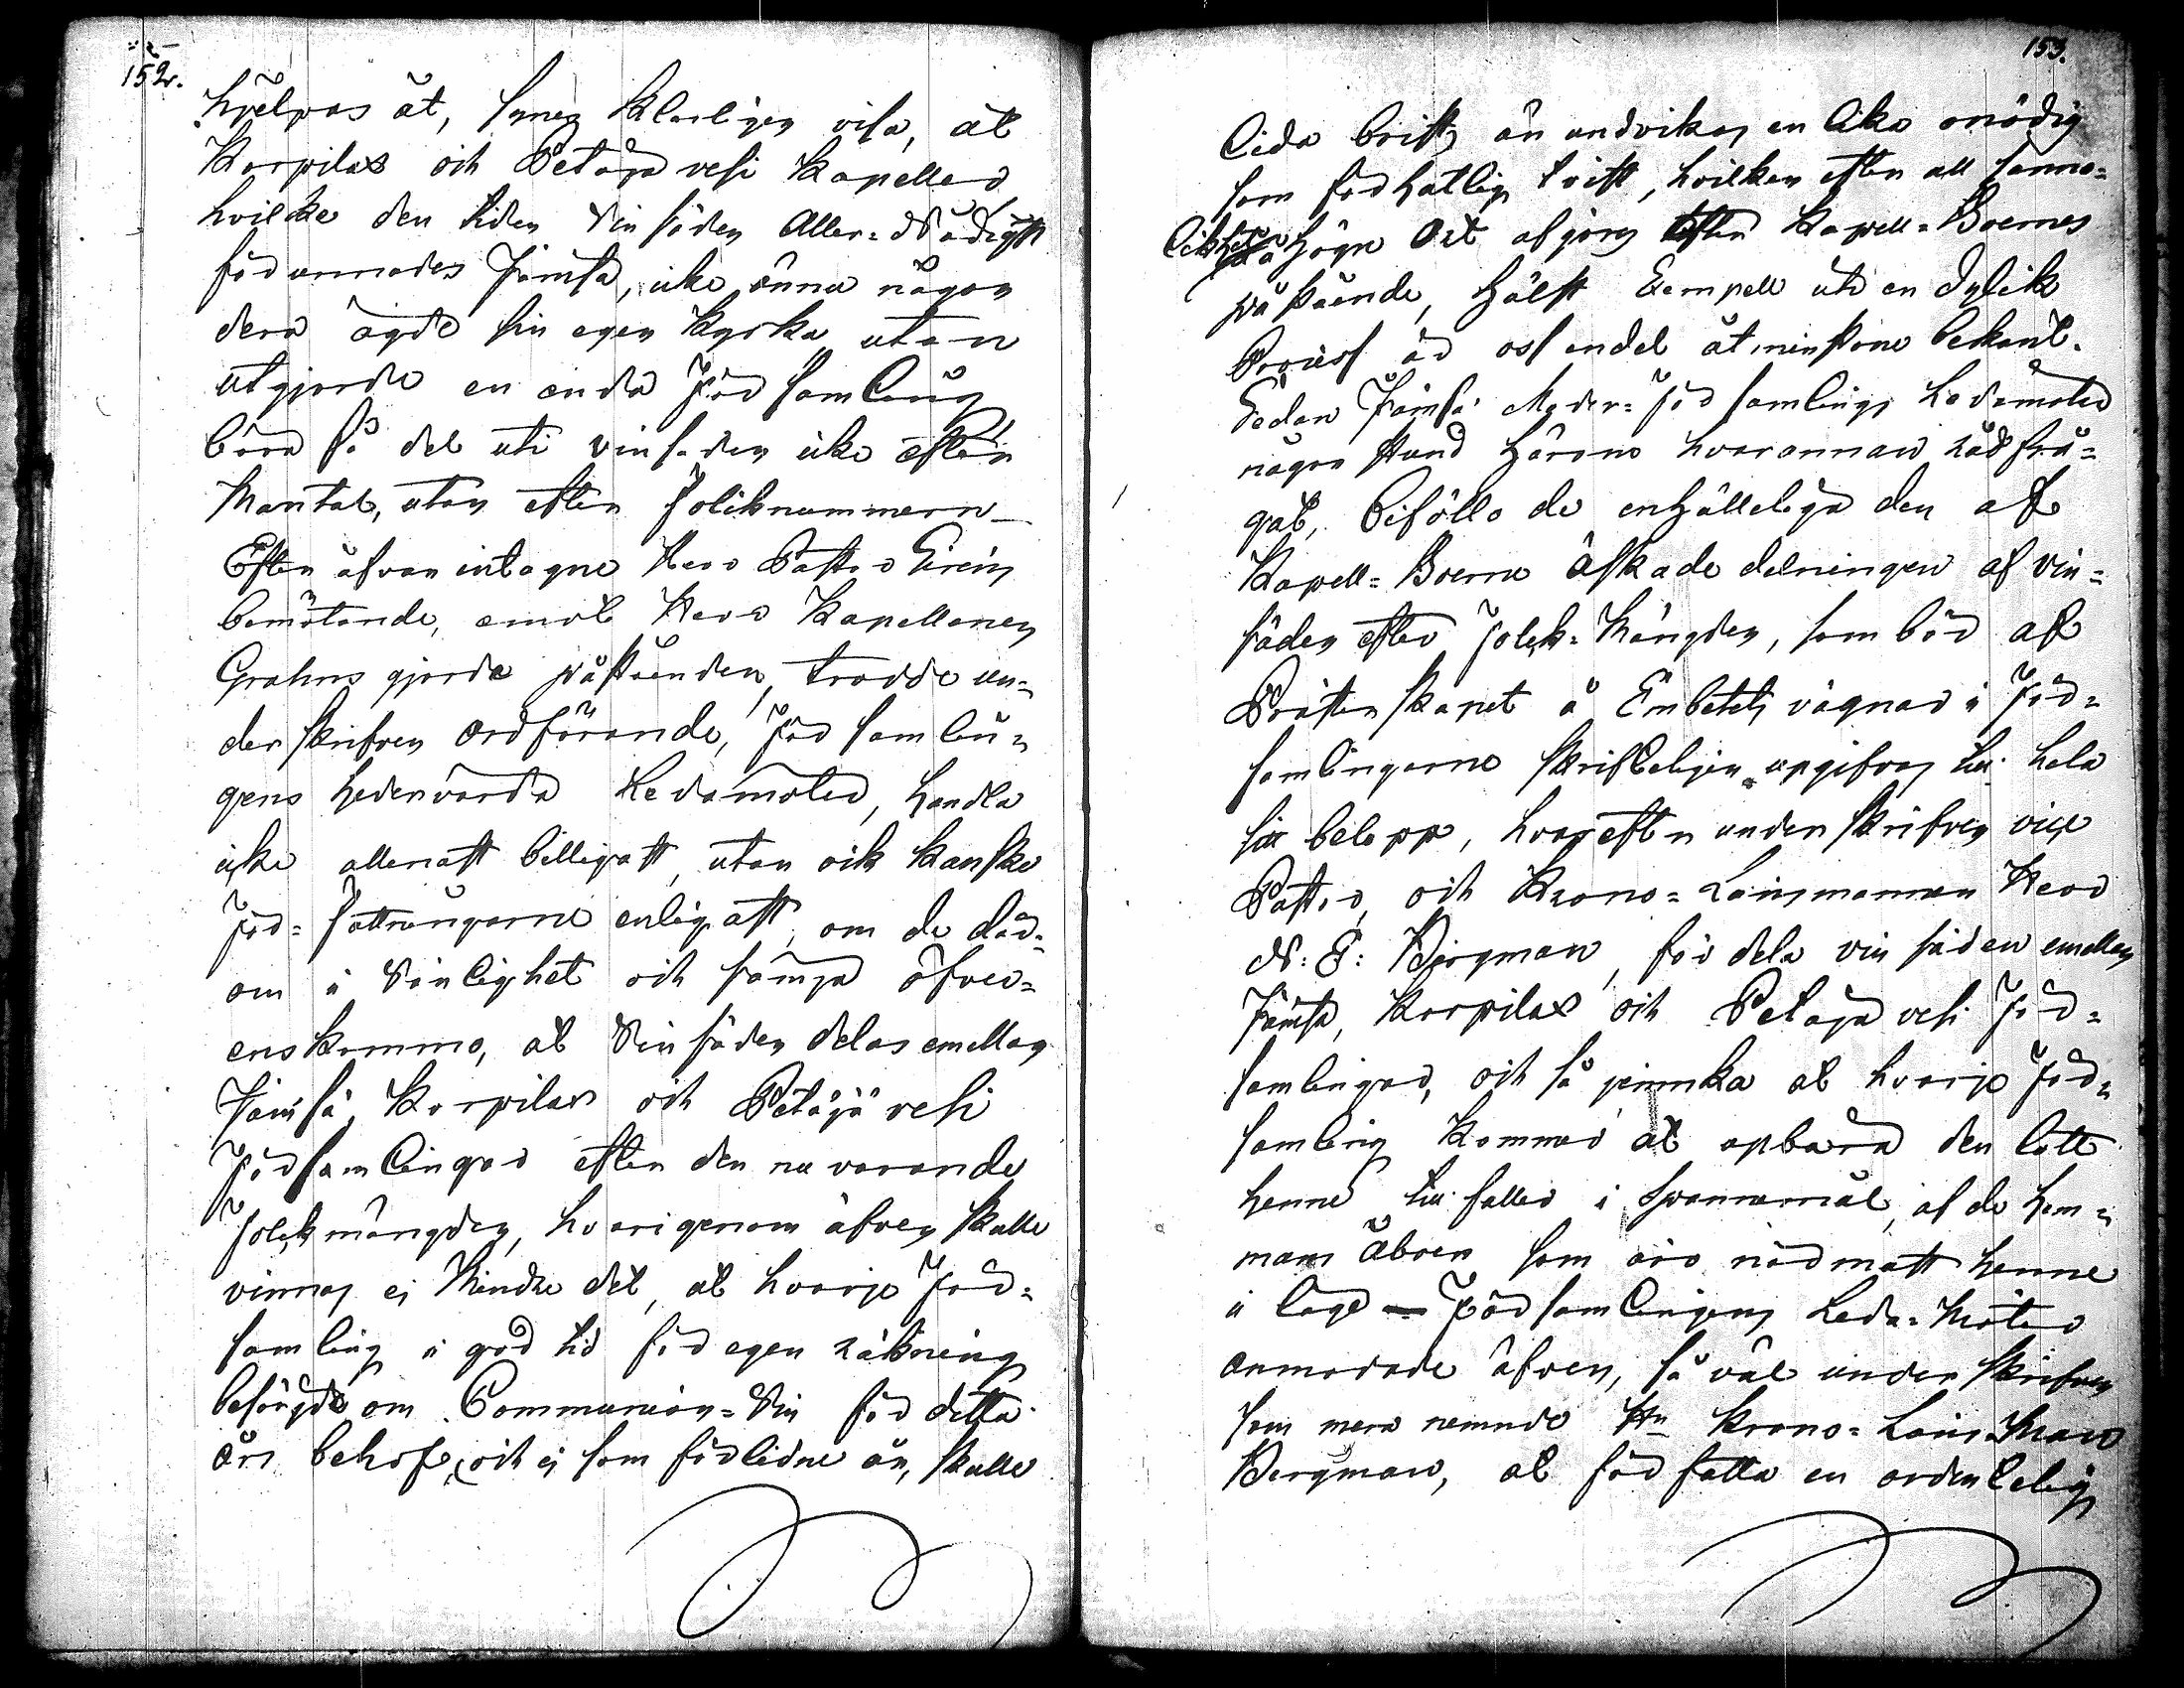 152.
hjelpas åt, synes klarligen visa, at
Korpilax och Petäjävesi Kapeller
hvilke den tiden Vinsäden Aller-Nådigst
förunnades Jämsä, icke ännu någon
dera ägde sin egen kyrka utan
utgjorde en enda Församling
böra få del uti vinsäden icke efter
Mantal, utan efter Folknummern
Efter ofvan intagne Herr Pastor
bemötande, emot Herr Kapellanen
Grahns gjorde påståenden, trodde un-
derskrifven ordförande, Församlin-
gens hedervärda Ledamöter, handla
icke allenast billigast, utan ock kanske
Författningarne enligast, om de där-
om i Vänlighet och sämja öfver-
enskommo, at Vinsäden delas emellan
Jämsä, Korpilax och Petäjävesi
Församlingar efter den nu varande
Folkmängden, hvarigenom äfven skulle
vinnas ej Mindre det, at hvarje För-
samling i god tid för egen räkning
besörgde om Communion-Vin för detta
års behof, och ej som förledne år, skulle
153.
lida brist, än undvikas en lika onödig
som förhatlig tvist, hvilken efter all sanno-
likhet å högre Ort afgöres efter Kapell-Boernes
påstående, hälst Exempell uti en dylik
Process är oss endel åtminstone bekant.
Sedan Jämsä Moder-Församlings Ledamöter
någon stund härom hvarannan rådfrå-
gat, biföllo de enhälleligen den af
Kapell-Boerne äskade delningen af vin-
säden efter Folk-Mängden, som bör af
Prästerskapet å Embetets vägnar i För-
samlingarne skrifteligen upgifvas till hela
sitt belopp, hvarefter underskrifven vice
Pastor, och Krono-Länsmannen Herr
N: G: Bergman, fördela vinsäden emellan
Jämsä, Korpilax och Petäjävesi För-
samlingar, och så jemnka at hvarje För-
samling kommer at upbära den lott
henne tillfaller i Spannemål, af de hem-
mans Åboer som äro närmast henne
i läge Församlingens Leda-Möter
anmodade äfven, så väl underskrifven
som mera nemnde Hn Krono-Läns Man
Bergman, at författa en ordentelig